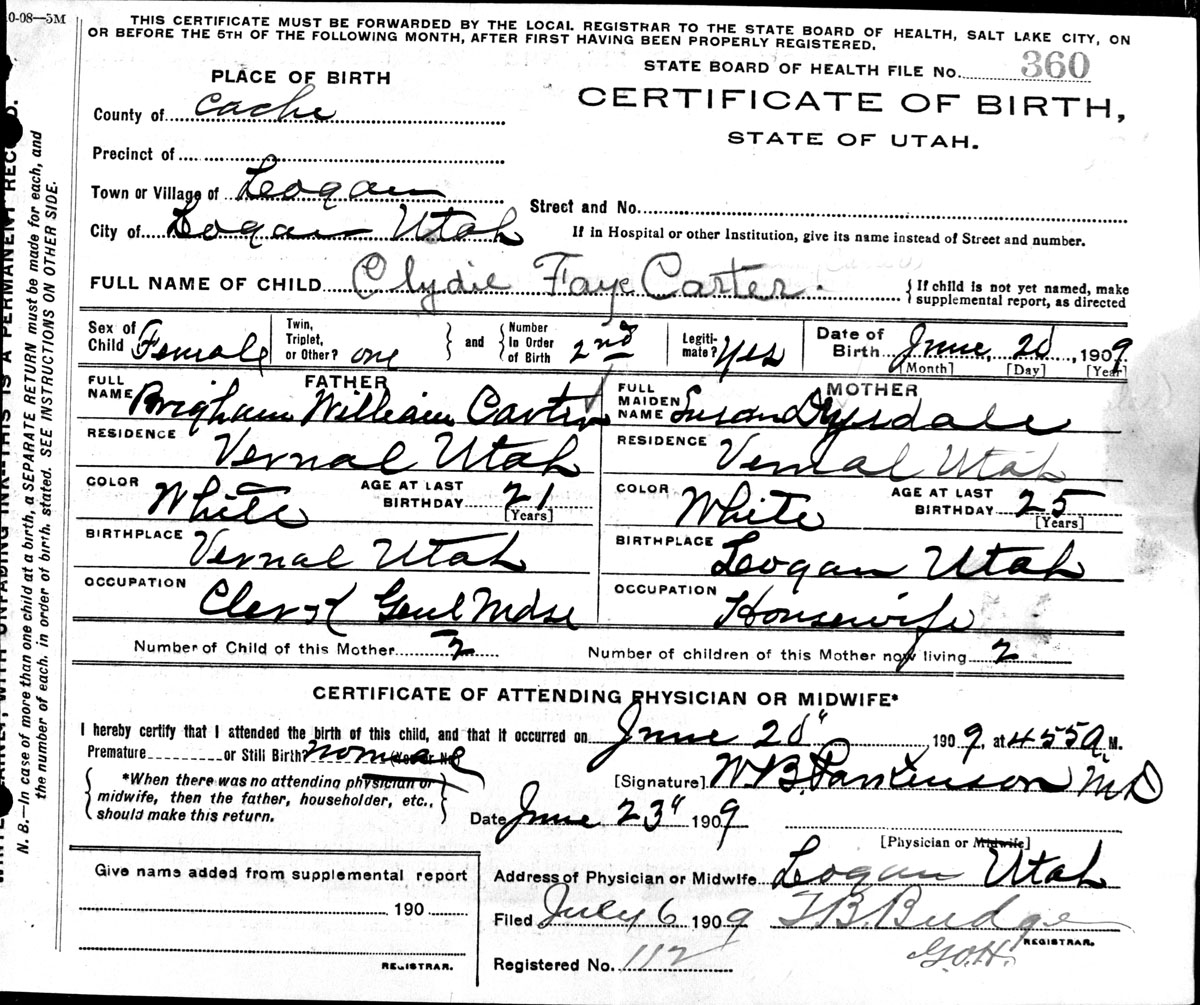 0-08—5M
THIS CERTIFICATE MUST BE FORWARDED BY THE LOCAL REGISTRAR TO THE STATE BOARD OF HEALTH, SALT LAKE CITY, ON
OR BEFORE THE 5TH OF THE FOLLOWING MONTH, AFTER FIRST HAVING BEEN PROPERLY REGISTERED.
STATE BOARD OF HEALTH FILE No. 360
PLACE OF BIRTH
CERTIFICATE OF BIRTH,
STATE OF UTAH.
County of Cache
Precinct of
Town or Village of Logan
Street and No.
City of Logan Utah
If in Hospital or other Institution, give its name instead of Street and number.
FULL NAME OF CHILD Clydie Faye Carter.
{If child is not yet named, make
supplemental report, as directed
Sex of Child Female
Twin, Triplet, or Other? one
and
Number In Order of Birth 2nd
Legitimate? Yes
Date of Birth June, 20, 1909
[Month] [Day] [Year]
FATHER
FULL NAME Brigham William Carter
MOTHER
FULL MAIDEN NAME Susan Drysdale
RESIDENCE Vernal Utah
RESIDENCE Vernal Utah
COLOR White
AGE AT LAST BIRTHDAY 21
[Years]
COLOR White
AGE AT LAST BIRTHDAY 25
[Years]
BIRTHPLACE Vernal Utah
BIRTHPLACE Logan Utah
OCCUPATION Clerk Genl Mdse
OCCUPATION Housewife
Number of Child of this Mother 2
Number of children of this Mother now living 2
CERTIFICATE OF ATTENDING PHYSICIAN OR MIDWIFE*
I hereby certify that I attended the birth of this child, and that it occurred on June 20" 1909, at 455 A. M.
Premature or Still Birth? normal (Yes or No)
*When there was no attending physician or
midwife, then the father, householder, etc.,
should make this return.
[Signature] W B Parkinson MD
Date June 23" 1909
[Physician or Midwife]
Give name added from supplemental report
190
REGISTRAR.
Address of Physician or Midwife Logan Utah
Filed July 6 1909 T B. Budge
REGISTRAR.
G.O.H.
Registered No. 112
N. B.—In case of more than one child at a birth, a SEPARATE RETURN must be made for each, and
the number of each, in order of birth, stated. SEE INSTRUCTIONS ON OTHER SIDE.
WITH UNFADING INK—THIS IS A PERMANENT